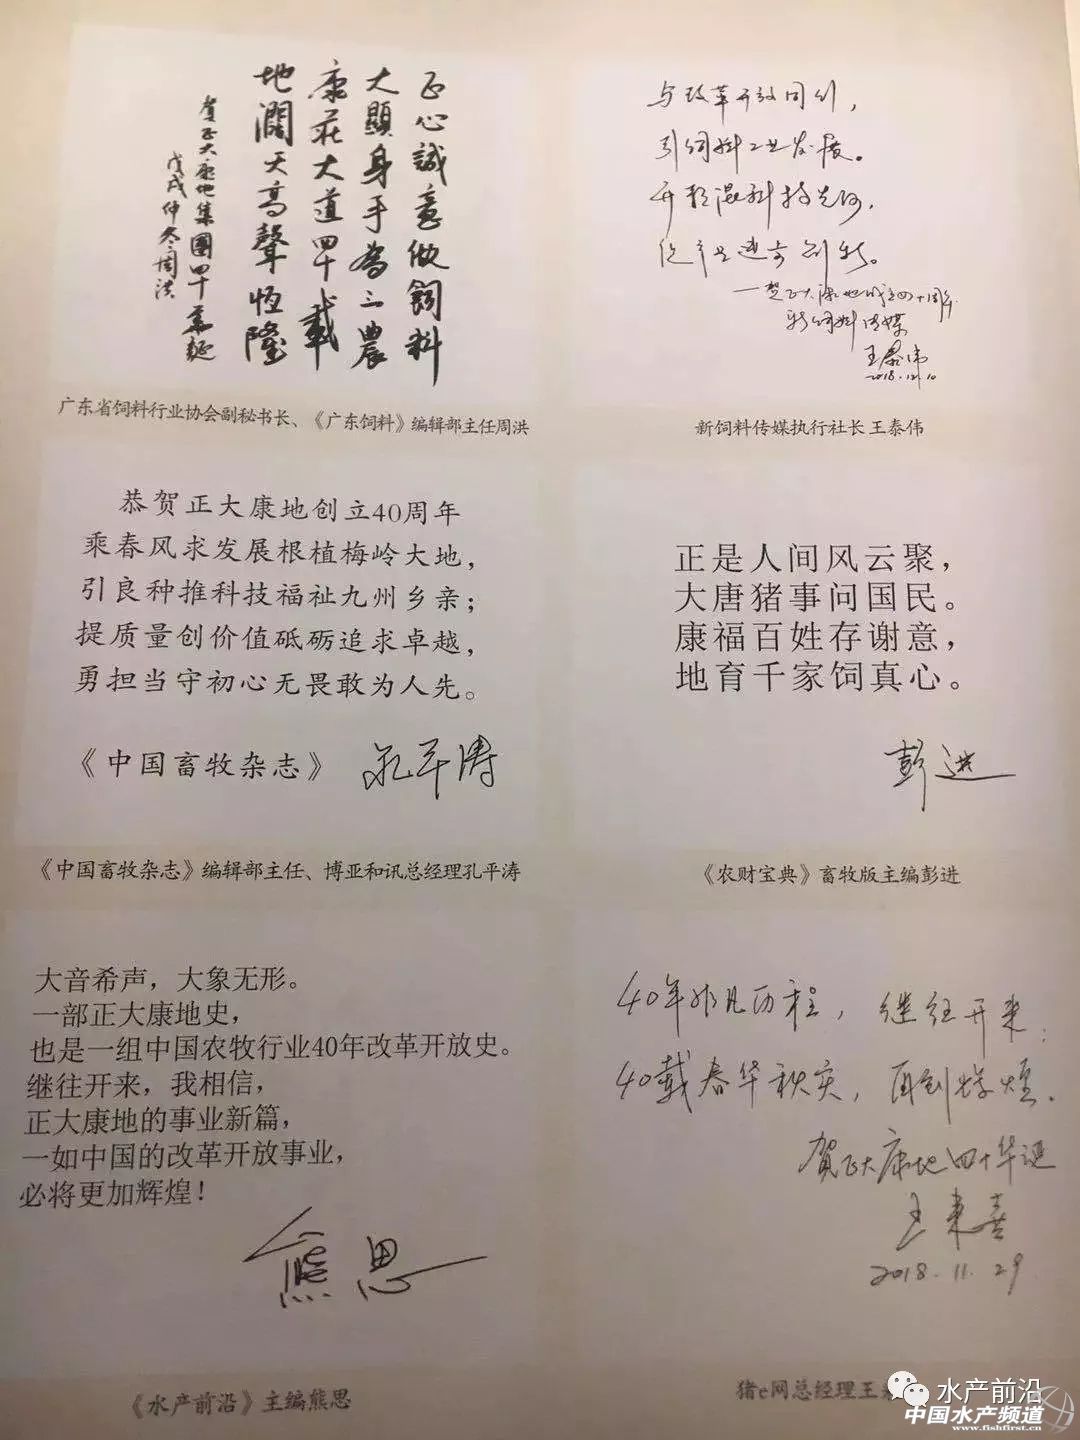 正心誠意做飼料
大顯身手為三農
康莊大道四十載
地濶天高聲恆隆
賀正大康地集團四十華誕
戊戌仲冬周洪
广东省饲料行业协会副秘书长、《广东饲料》编辑部主任周洪
与改革开放同行，
引饲料工业发展。
开预混科技先河，
促产品迭步创新。
一贺正大康地成立四十周年
新饲料传媒
王泰伟
2018.12.10
新饲料传媒执行社长 王泰伟
恭贺正大康地创立40周年
乘春风求发展根植梅岭大地，
引良种推科技福祉九州乡亲；
提质量创价值砥砺追求卓越，
勇担当守初心无畏敢为人先。
《中国畜牧杂志》 孔平涛
《中国畜牧杂志》编辑部主任、博亚和讯总经理孔平涛
正是人间风云聚，
大唐猪事问国民。
康福百姓存谢意，
地育千家饲真心。
彭进
《农财宝典》畜牧版主编彭进
大音希声，大象无形。
一部正大康地史，
也是一组中国农牧行业40年改革开放史。
继往开来，我相信，
正大康地的事业新篇，
一如中国的改革开放事业，
必将更加辉煌！
熊思
《水产前沿》主编熊思
40年非凡历程，继往开来；
40载春华秋实，再创辉煌。
贺正大康地四十华诞
王来喜
2018.11.29
猪e网总经理王
水产前沿
中国水产频道
www.fishfirst.cn